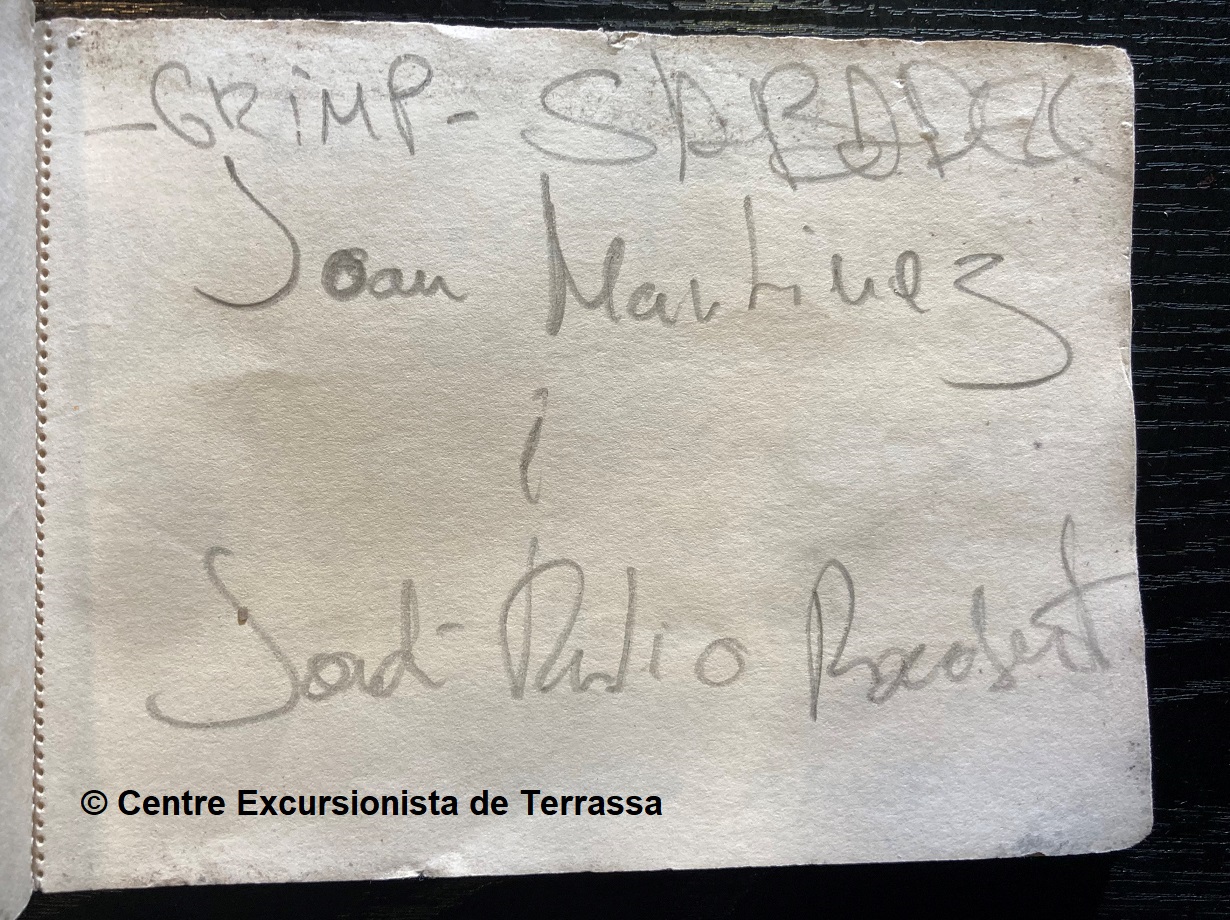 -GRIMP- SABADELL
Joan Martinez
i
Jordi Rubio
© Centre Excursionista de Terrassa